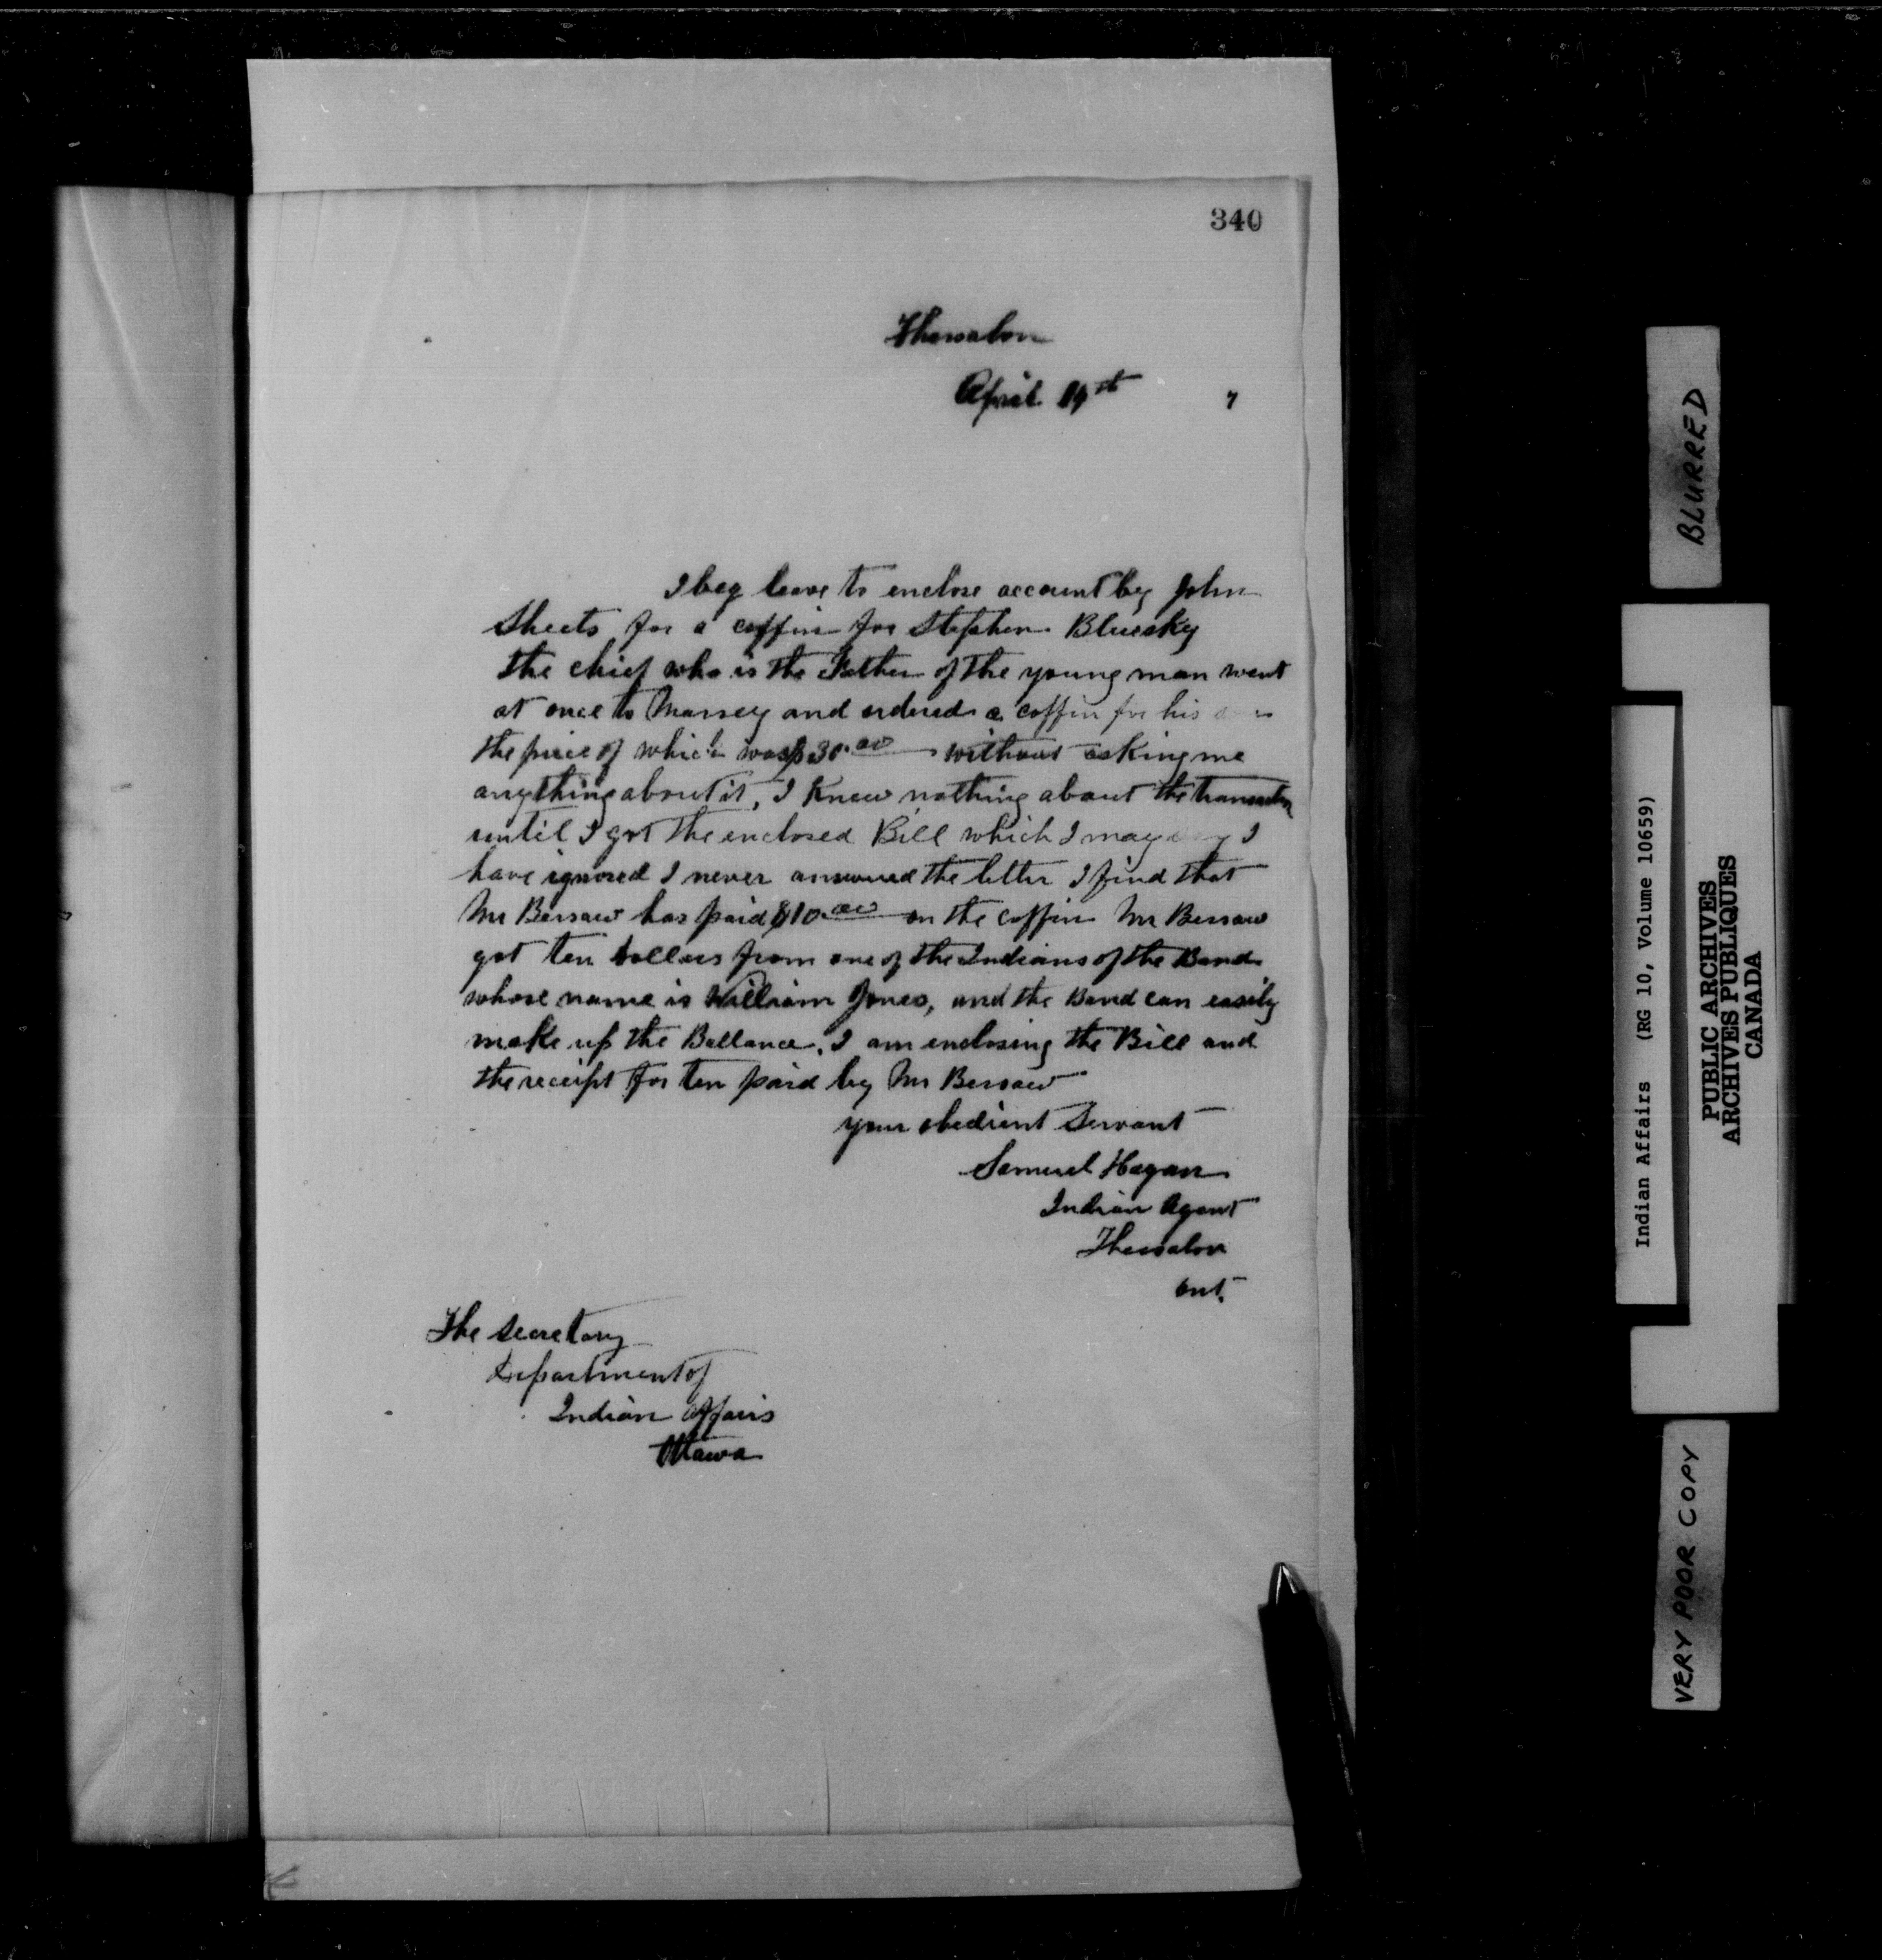 340
Thessalon
April 19th 7
I beg leave to enclose account by John
Sheets for a coffin for Stephen Bluesky
the chief who is the Father of the young man went
at once to Massey and ordered a coffin for his
the price of which was $30.00 without asking me
anything about it, I knew nothing about the transaction
until I got the enclosed Bill which I may say I
have ignored I never answered the letter I find that
Mr Bersaw has paid $10.00 on the coffin Mr Bersaw
got ten dollars from one of the Indians of the Band
whose name is William Jones, and the Band can easily
make up the Ballance. I am enclosing the Bill and
the receipt for ten paid by Mr Bersaw
your obedient Servant
Samuel Hagan
Indian Agent
Thessalon
Ont.
The Secretary
Department of
Indian Affairs
Ottawa
BLURRED
Indian Affairs (RG 10, Volume 10659)
PUBLIC ARCHIVES
ARCHIVES PUBLIQUES
CANADA
VERY POOR COPY